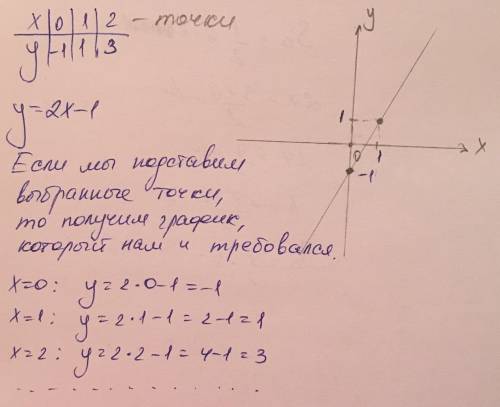 x | 0 | 1 | 2 - точки
y | -1 | 1 | 3
y=2x-1
Если мы подставим
выбранные точки,
то получим график,
который нам и требовался.
x=0: y=2·0-1=-1
x=1: y=2·1-1=2-1=1
x=2: y=2·2-1=4-1=3
y
1
0 1 x
-1